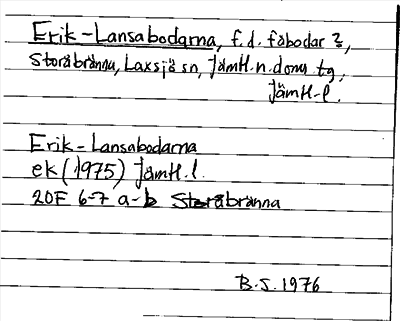 Erik-Lansabodarna, f.d. fäbodar ?,
Storåbränna, Laxsjö sn, Jämtl. n. doms tg,
Jämtl. l.
Erik-Lansabodarna
ek (1975) Jämtl. l.
20F 6-7 a-b Storåbränna
B.S. 1976